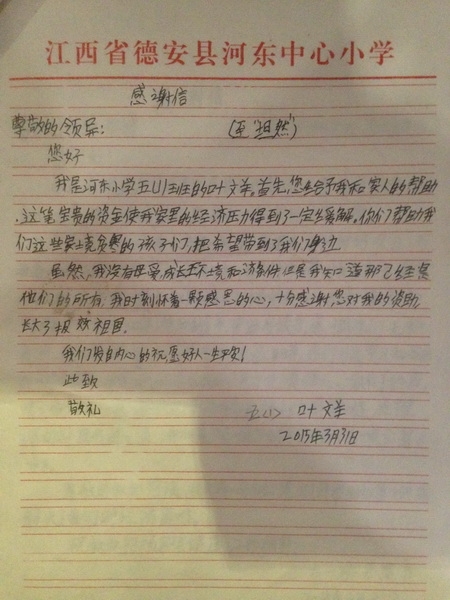 江西省德安县河东中心小学
感谢信
尊敬的领导: (至"坦然")
您好
我是河东小学五(1)班的叶文洋,首先,您给予我和家人的帮助
.这笔宝贵的资金使我家里的经济压力得到了一定缓解。你们帮助我
们这些家境贫寒的孩子们,把希望带到了我们身边.
虽然,我没有 成长环境和 条件但是我知道那已经是
他们的所有.我时刻怀着一颗感恩的心,十分感谢,您对我的资助,
长大了报效祖国.
我们发自内心的祝愿好人一生平安!
此致
敬礼 五(1) 叶文洋
2015年3月31日